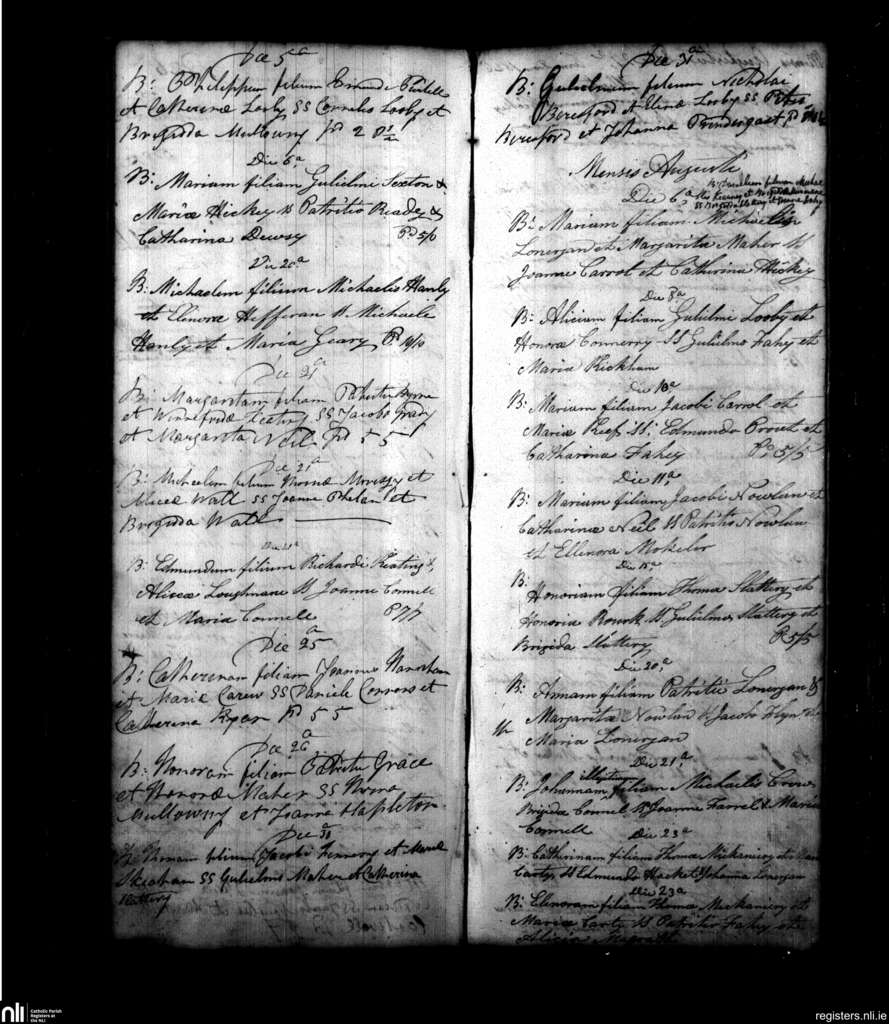 Die 5a
B: Philippum filium Edmundi
et Catherinæ Looby SS Cornelio Looby et
Brigida Mullowny pd 2 8½
Die 6a
B: Mariam filiam Gulielmi Sexton &
Mariæ Hickey SS Patritio Ready &
Catharina Dewsy Pd 5/0
Die 20a
B: Michaelem filium Michaelis Hanly
et Elenora Hefferan SS Michaele
Hanly et Maria Geary Pd 10/10
Die 21a
B: Margaritam filiam Patritii Byrne
et Winnefridæ Keating SS Jacobo Grady
et Margarita Neil Pd 5 5
Die 21a
B: Micheelem filium Thomæ Morissy et
Aliciæ Wall SS Joanne Phelan et
Brigida Wall
Die 21a
B: Edmundum filium Richardi Keating &
Aliciæ Loughnane SS Joanne Connell
et Maria Connell P 7/7
Die 25a
B: Catherinam filiam Joannis Hanrahan
et Mariæ Carew SS Daniele Connors et
Catherina Ryan Pd 5 5
Die 26a
B: Honoram filiam Patritii Grace
et Honoræ Maher SS Thoma
Mullowny et Joanna Stapleton
Die 31a
B: Thomam filium Jacobi Kennery et Mariæ
Skeahan SS Gulielmo Maher et Catherina
Slattery
Die 31a
B: Gulielmum filium Nicholai
Beresford et Elenæ Looby SS Petro
Beresford et Johanna Prendergast, pd
Mensis Augusti
Die 6a
B: Mariam filiam Michaelis
Lonergan et Margarita Maher SS
Joanne Carrol et Catherina Hickey
Die 8a
B: Aliciam filiam Gulielmi Looby et
Honora Connerry SS Gulielmo Fahy et
Maria Kickham
Die 10a
B: Mariam filiam Jacobi Carrol et
Mariæ Keef SS: Edmundo Prout et
Catharina Fahey Pd 5/5
Die 11a
B: Mariam filiam Jacobi Nowlan et
Catharinæ Neil SS Patritio Nowlan
et Ellenora Mokelor
Die 15a
B: Honoriam filiam Thomæ Slattery et
Honoria Rourk SS Gulielmo Slattery et
Brigida Slattery P. 5/5
Die 20a
B: Annam filiam Patritii Lonergan &
Margarita Nowlan SS Jacobo Flyn et
Maria Lonergan
Die 21a
B: Johannam illegitimam filiam Michaelis Crow
Brigida Connel SS Joanne Farrel & Maria
Connell
Die 23a
B: Catherinam filiam Thomæ Mickaniery et Mariæ
Carty SS Edmundo Hacket Johanna Lonergan
Die 23a
B: Elenoram filiam Thomæ Mickaniery et
Mariæ Carty SS Patritio Fahy et
Alicia
nli
Catholic Parish
Registers at
the NLI
registers.nli.ie